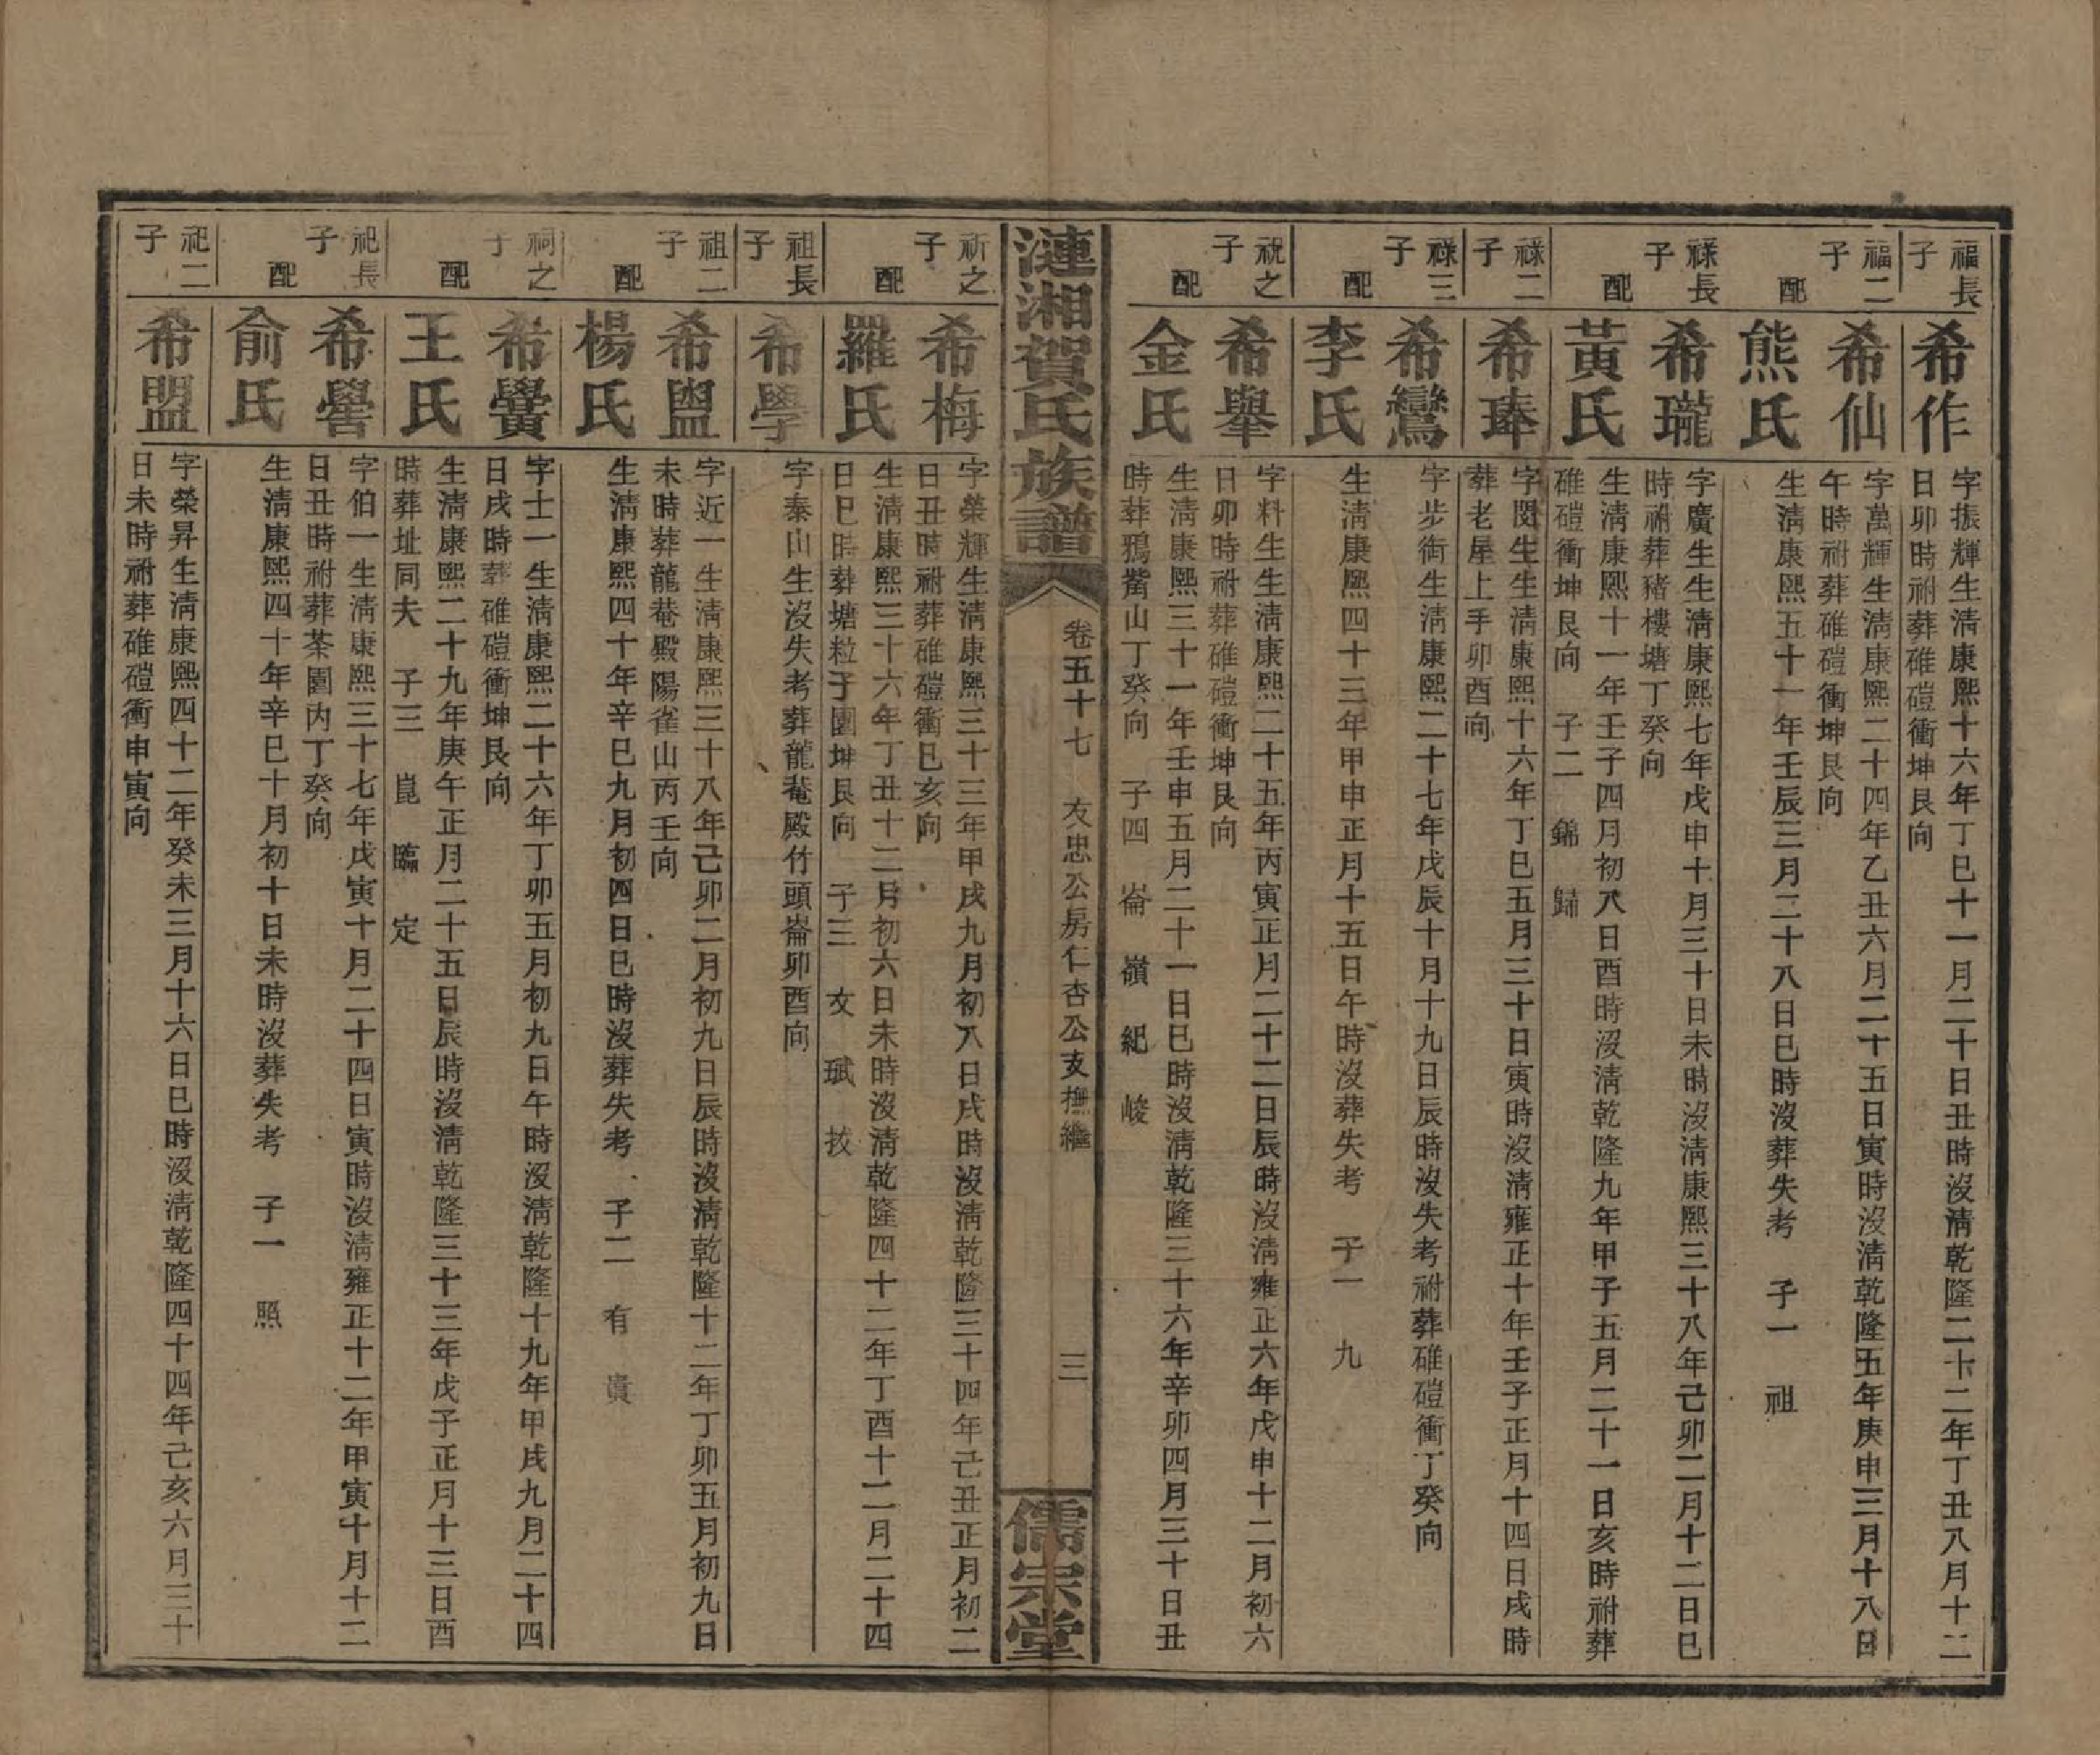 福長子
希作
字振輝生清康熙十六年丁巳十一月二十日丑時沒清乾隆二十二年丁丑八月十二
日卯時祔葬碓磑衝坤艮向
福二子
希仙
字萬輝生清康熙二十四年乙丑六月二十五日寅時沒清乾隆五年庚申三月十八日
午時祔葬碓磑衝坤艮向
配
熊氏
生清康熙五十一年壬辰三月二十八日巳時沒葬失考 子一 祖
祿長子
希瓏
字廣生生清康熙七年戊申十月三十日未時沒清康熙三十八年己卯二月十二日巳
時祔葬豬樓塘丁癸向
配
黃氏
生清康熙十一年壬子四月初八日酉時沒清乾隆九年甲子五月二十一日亥時祔葬
碓磑衝坤艮向 子二 錦 歸
祿二子
希琫
字閔生生清康熙十六年丁巳五月三十日寅時沒清雍正十年壬子正月十四日戌時
葬老屋上手卯酉向
祿三子
希鸞
字步衙生清康熙二十七年戊辰十月十九日辰時沒失考祔葬碓磑衝丁癸向
配
李氏
生清康熙四十三年甲申正月十五日午時沒葬失考 子一 九
祝之子
希舉
字料生生清康熙二十五年丙寅正月二十二日辰時沒清雍正六年戊申十二月初六
日卯時祔葬碓磑衝坤艮向
配
金氏
生清康熙三十一年壬申五月二十一日巳時沒清乾隆三十六年辛卯四月三十日丑
時葬鴉觜山丁癸向 子四 崙 嶺 紀 峻
漣湘賀氏族譜
卷五十七 友忠公房仁杏公支撫繼
三
儒宗堂
祈之子
希梅
字榮輝生清康熙三十三年甲戌九月初八日戌時沒清乾隆三十四年己丑正月初二
日丑時祔葬碓磑衝巳亥向
配
羅氏
生清康熙三十六年丁丑十二月初六日未時沒清乾隆四十二年丁酉十二月二十四
日巳時葬塘粒子園坤艮向 子三 友 珷 扷
祖長子
希學
字泰山生沒失考葬龍菴殿竹頭崙卯酉向
祖二子
希盥
字近一生清康熙三十八年己卯二月初九日辰時沒清乾隆十二年丁卯五月初九日
未時葬龍菴殿陽雀山丙壬向
配
楊氏
生清康熙四十年辛巳九月初四日巳時沒葬失考 子二 有 貴
祠之子
希黌
字士一生清康熙二十六年丁卯五月初九日午時沒清乾隆十九年甲戌九月二十四
日戌時葬碓磑衝坤艮向
配
王氏
生清康熙二十九年庚午正月二十五日辰時沒清乾隆三十三年戊子正月十三日酉
時葬址同夫 子三 崑 臨 定
祀長子
希嚳
字伯一生清康熙三十七年戊寅十月二十四日寅時沒清雍正十二年甲寅十月十二
日丑時祔葬茶園內丁癸向
配
俞氏
生清康熙四十年辛巳十月初十日未時沒葬失考 子一 照
祀二子
希盟
字榮昇生清康熙四十二年癸未三月十六日巳時沒清乾隆四十四年己亥六月三十
日未時祔葬碓磑衝申寅向